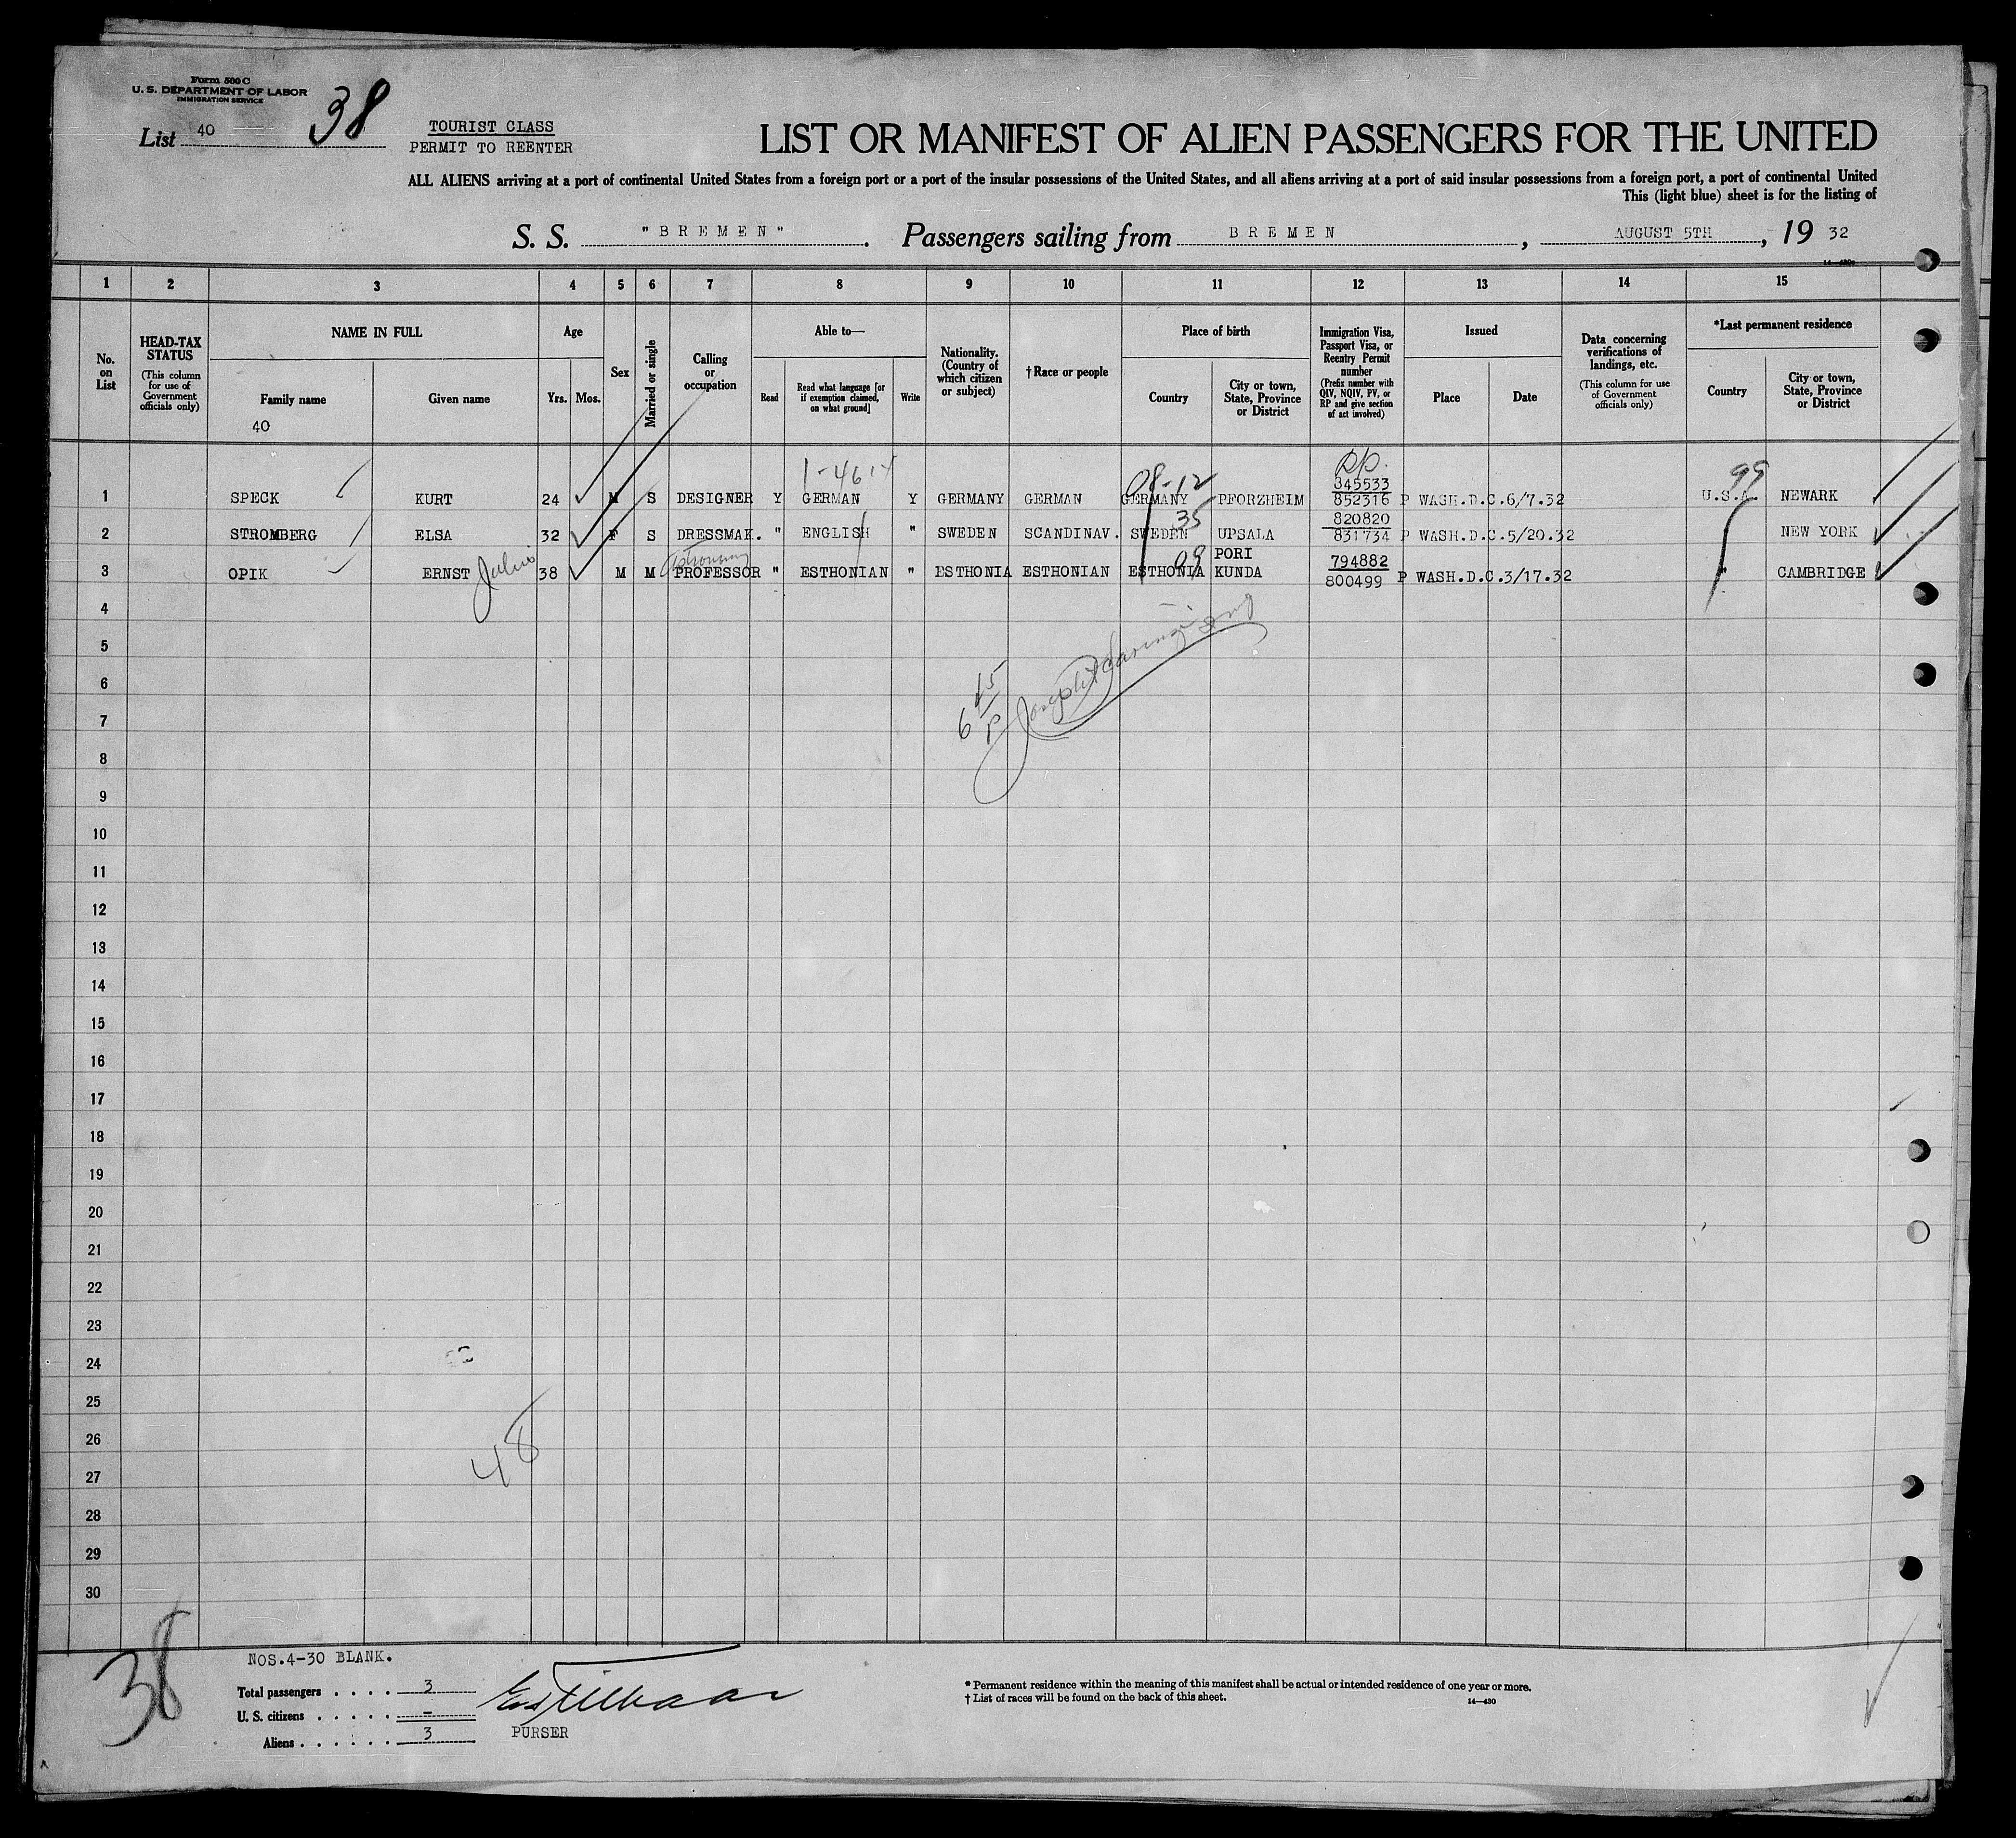 Form 500 C
U. S. DEPARTMENT OF LABOR
IMMIGRATION SERVICE
List 40
38
TOURIST CLASS
PERMIT TO REENTER
LIST OR MANIFEST OF ALIEN PASSENGERS FOR THE UNITED
ALL ALIENS arriving at a port of continental United States from a foreign port or a port of the insular possessions of the United States, and all aliens arriving at a port of said insular possessions from a foreign port, a port of continental United
This (light blue) sheet is for the listing of
S. S. "BREMEN". Passengers sailing from BREMEN, AUGUST 5TH, 19 32
1 2 3 4 5 6 7 8 9 10 11 12 13 14 15
No. on List
HEAD-TAX STATUS (This column for use of Government officials only)
NAME IN FULL
Family name
Given name
40
Age
Yrs. Mos.
Sex
Married or single
Calling or occupation
Able to—
Read
Read what language [or if exemption claimed, on what ground]
Write
Nationality. (Country of which citizen or subject)
†Race or people
Place of birth
Country
City or town, State, Province or District
Immigration Visa, Passport Visa, or Reentry Permit number (Prefix number with QIV, NQIV, PV, or RP and give section of act involved)
Issued
Place
Date
Data concerning verifications of landings, etc. (This column for use of Government officials only)
*Last permanent residence
Country
City or town, State, Province or District
1 SPECK KURT 24 M S DESIGNER Y GERMAN Y GERMANY GERMAN GERMANY PFORZHEIM 345533 852316 P WASH.D.C.6/7.32 U.S.A. NEWARK
99
35
2 STROMBERG ELSA 32 F S DRESSMAK. " ENGLISH " SWEDEN SCANDINAV. SWEDEN UPSALA 820820 831734 P WASH.D.C.5/20.32 " NEW YORK
09
3 OPIK ERNST Julius 38 M M PROFESSOR " ESTHONIAN " ESTHONIA ESTHONIAN ESTHONIA PORI KUNDA 794882 800499 P WASH.D.C.3/17.32 " CAMBRIDGE
4
5
6
7
8
9
10
11
12
13
14
15
16
17
18
19
20
21
22
23
24
25
26
27
28
29
30
48
38
NOS.4-30 BLANK.
Total passengers . . . . 3
U. S. citizens . . . . . –
Aliens . . . . . . 3
PURSER
* Permanent residence within the meaning of this manifest shall be actual or intended residence of one year or more.
† List of races will be found on the back of this sheet.
14—430